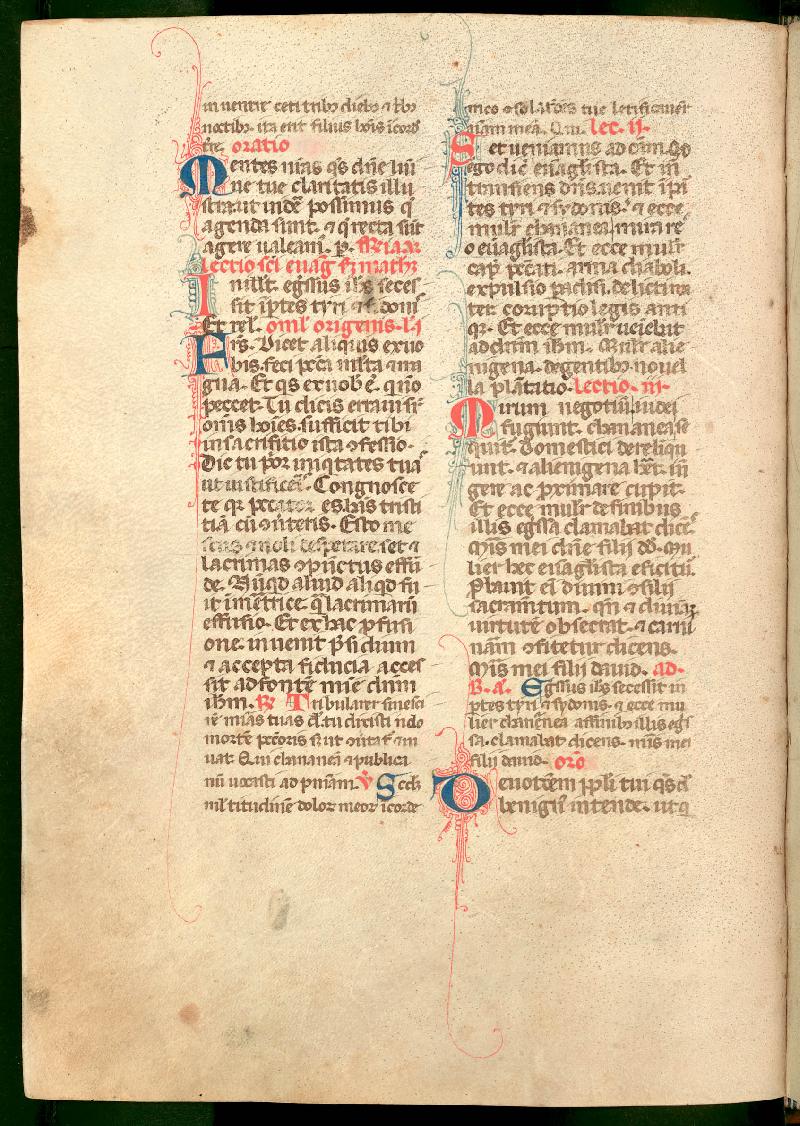 in uentre ceti tribȝ diebȝ ⁊ tbȝ
noctibȝ. ita erit filius hoīs ī cord
tre. oratio
Mentes nr̄as qs dn̄e lūi
ne tue claritatis illu
stra. ut uidē possimus q̄
agenda sunt. ⁊ q̄ recta sūt
agere ualeam̄. p.
Lectio sc̄i euāg s. math.
In illt. egr̄ssus ihs seces
sit ī ptes tyri ⁊ sydonis
Et rel. omł origenis. l. i
Frs. Dicet aliquis ex uo
bis. feci pctā multa ⁊ ma
gna. Et qs ex uob ē. qui nō
peccet. Tu dicis erraui sr̄
om̄s hoīes. sufficit tibi
in sacrifitio ista ꝯfessio.
Dic tu p̄or iniqtates tuas
ut iustificeris. Congnosce
te qr peccator es. habs tristi
tiā cū ꝯuteris. Esto me
lacrimas ꝯpūctus effū
de. Nūqd aliud aliqd fu
it ī meretrice. q̄ lacrimarū
effusio. Et ex hac ꝓfusi
one. inuenit p̄sidium
⁊ accepta fiducia acces
sit ad fontē mīe dn̄m
ihm. R. Tribularer si nesci
rē mīas tuas dn̄e. tu dixisti nolo
mortē pctōris sȝ ut ꝯutat ⁊ ui
uat. Qui chananeā ⁊ publica
nū uocasti ad pniam. V Scdȝ
multitudinē dolor meor ī corde
meo ꝯsolatōes tue letificauer̄t
aīam meā. Qui. Lec. ij.
Set ueniamus ad
ego dic̄ euāglista. Et īn
transiens dn̄s. uenit ī pr̄
tes tyri ⁊ sydonis. ⁊ ecce
mulr chananea. mira re
o euāglista. Et ecce mulr
cap pcc̄ati. arma diaboli.
expulsio padisi. delicti ma
ter. coruptio legis anti
que. Et ecce mulr ueniebat
ad dn̄m ihm. Mulr alie
nigena. de gentibȝ nouel
la plātatio. Lectio. iij.
Mirum negotiū. iudei
fugiunt. chananea se
quit̄. Domestici dereliqu
unt. ⁊ alienigena
gere ac proximare cupit.
Et ecce mulr de finibus
illis egr̄ssa clamabat dicēs.
Mis mei dn̄e filij dd. Mu
lier hec euāglista efficitr̄.
Probauit eī diuinū ꝯsilij
sacramtum. qn̄ ⁊ diuinā
uirtutē obsecrat. ⁊ carni
nam ꝯfitetur dicens.
Mis mei filij dauid. ad.
B. a. Egr̄ssus ihs secessit in
ptes tyri ⁊ sydonis. ⁊ ecce mu
lier chananea a finibȝ illis egr̄s
sa. clamabat dicens. mis mei
filij dauid. oro
Deuotōem ppli tui qs dn̄e
benign̄ intende. ut q